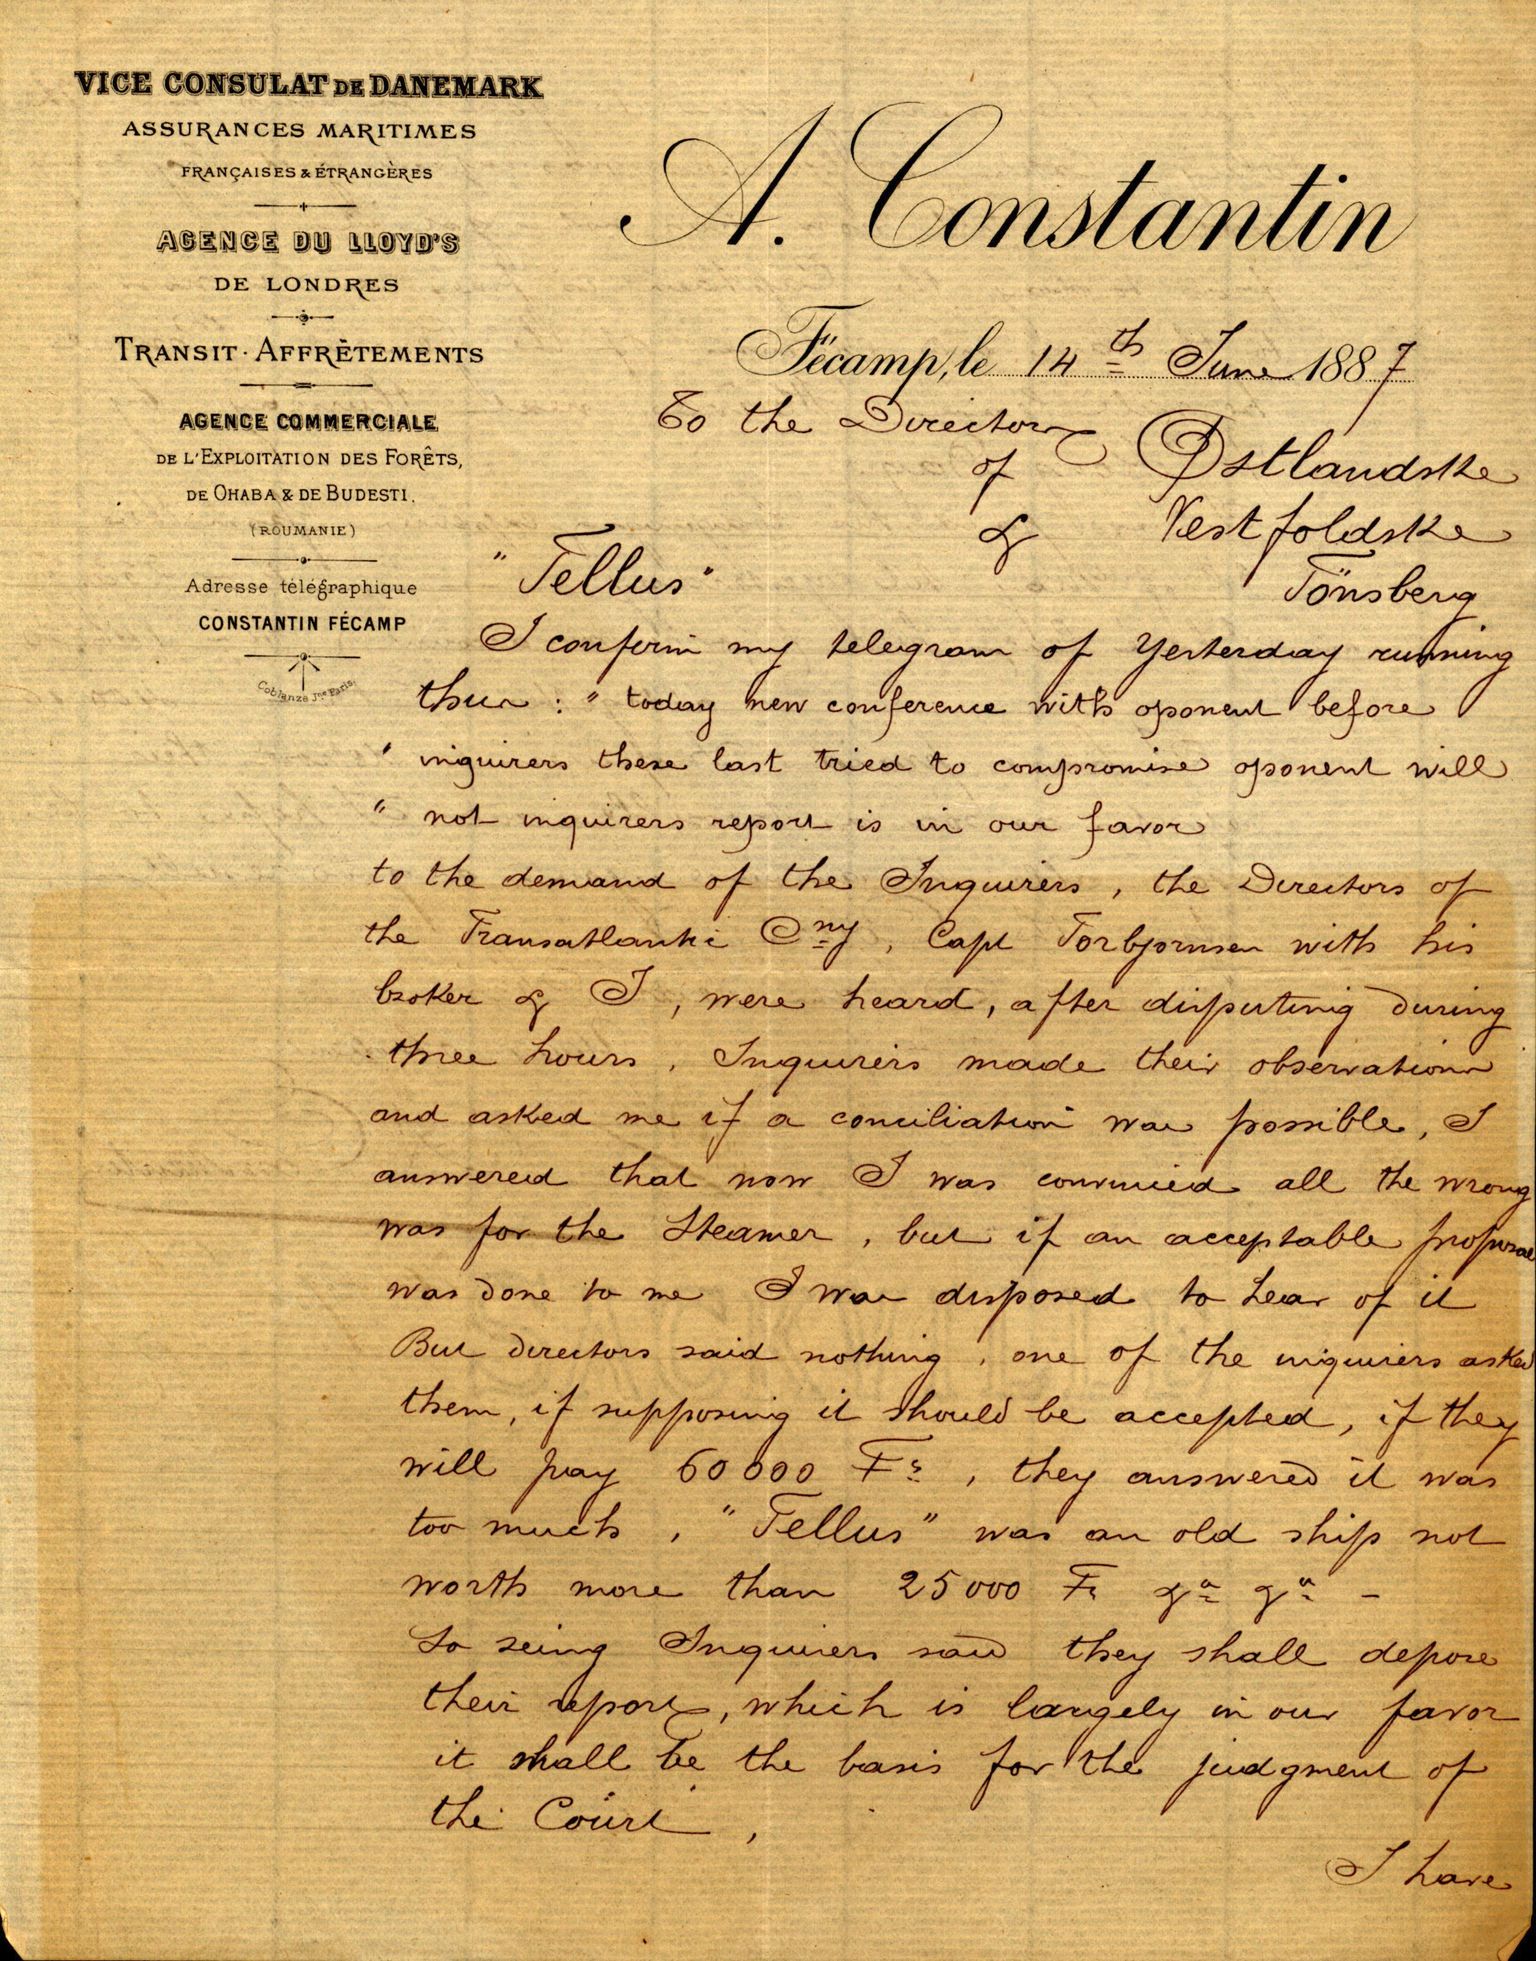 VICE CONSULAT DE DANEMARK
ASSURANCES MARITIMES
FRANÇAISES & ÉTRANGÈRES
AGENCE DU LLOYD'S
DE LONDRES
TRANSIT · AFFRÈTEMENTS
AGENCE COMMERCIALE
DE L'EXPLOITATION DES FORÊTS,
DE OHABA & DE BUDESTI.
(ROUMANIE)
Adresse télégraphique
CONSTANTIN FÉCAMP
Coblanze Jne Paris.
A. Constantin
Fécamp, le 14th June 1887
To the Directors
of Østlandske
& Vestfoldske
"Tellus" Tönsberg
I confirm my telegram of Yesterday running
thus : " today new conference with oponent before
" inquirers these last tried to compromise oponent will
" not inquirers report is in our favor
to the demand of the Inquirers, the Directors of
the Transatlantic Cny, Capt Torbjornsen with his
broker & I, were heard, after disputing during
three hours, Inquirers made their observations
and asked me if a conciliation was possible, I
answered that now I was convinced all the wrong
was for the Steamer, but if an acceptable proposal
was done to me I was disposed to hear of it
But directors said nothing, one of the inquirers asked
them, if supposing it should be accepted, if they
will pay 60000 Fs, they answered it was
too much, "Tellus" was an old ship not
worth more than 25000 Fs &a &a -
So seing Inquirers said they shall depose
their report, which is largely in our favor
it shall be the basis for the judgment of
the Court,
I have